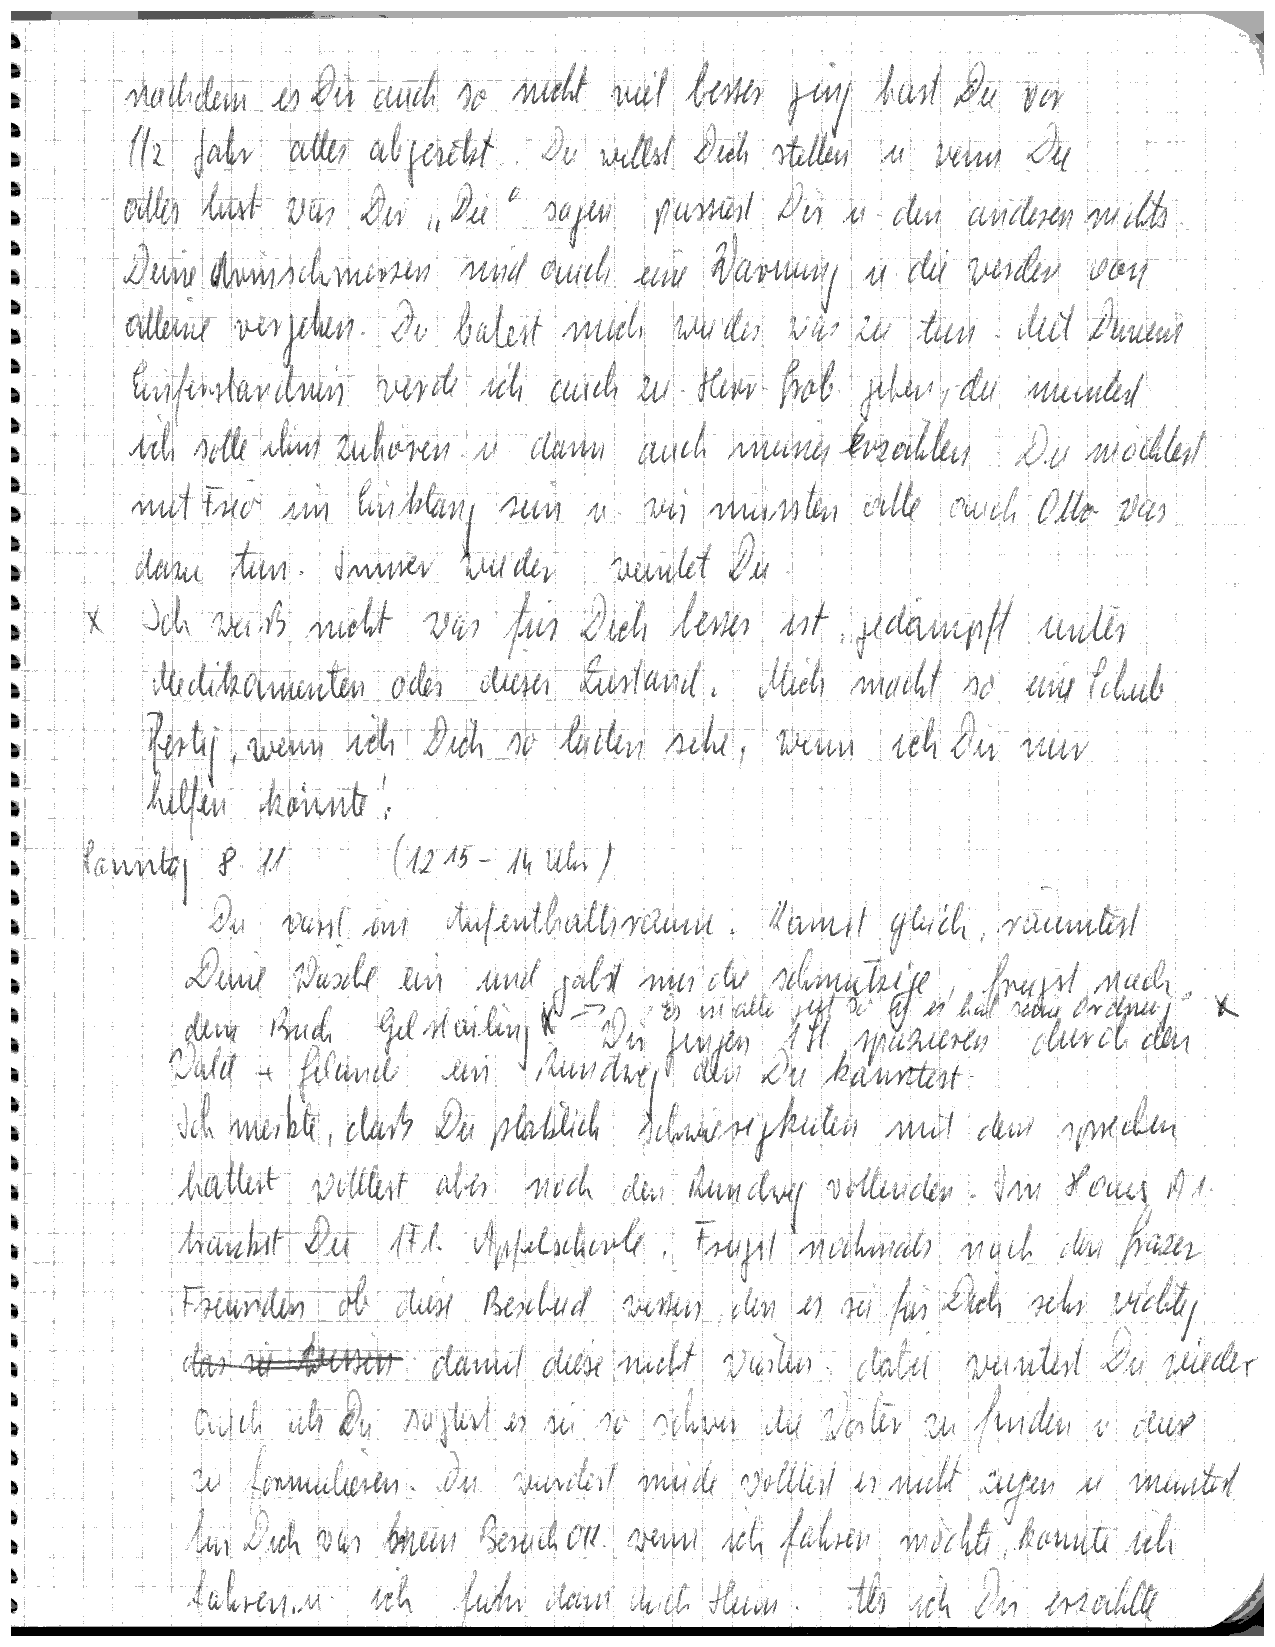 nachdem es Dir auch so nicht viel besser ging hast Du vor
1/2 Jahr alles abgesetzt. Du willst Dich stellen u wenn Du
alles tust was Dir „Die“ sagen passiert Dir u den anderen nichts
Deine Armschmerzen sind auch eine Warnung u die werden von
alleine vergehen. Du batest mich wieder was zu tun. Mit Deinem
Einferständnis werde ich auch zu Herr Grob gehen, du meintest
ich solle ihm zuhören u dann auch meines erzählen Du möchtest
mit Frid im Einklang sein u wir müssten alle auch Otto was
dazu tun. Immer wieder weintet Du.
x Ich weiß nicht was für Dich besser ist, gedämpft unter
Medikamenten oder dieser Zustand. Mich macht so eine Schub
fertig, wenn ich Dich so leiden sehe, wenn ich Dir nur
helfen könnte!
Sonntag 8.11 (12 15 - 14 Uhr)
Du warst im Aufenthaltsraum. Kamst gleich, räumtest
Deine Wäsche ein und gabst mir die schmutzige, fragst nach
Es ist alles jetzt so es hat seine Ordnung x
dem Buch x → Wir gingen 1 Std spazieren durch den
Wald + Gelände ein Rundweg den Du kanntest
Ich merkte, daß Du plötzlich Schwierigkeiten mit dem sprechen
hattest wolltest aber noch den Rundweg vollenden. Im Haus A1.
trankst Du 1 Fl. Apfelschorle. Fragst nochmals nach den Grazer
Freunden ob diese Bescheid wissen, den es sei für Dich sehr wichtig
das sie wissen damit diese nicht warten. dabei weintest Du wieder
auch als Du sagtest es sei so schwer die Wörter zu finden u dies
zu formulieren. Du wurdest müde wolltest es nicht zeigen u meintest
für Dich war mein Besuch OK. wenn ich fahren möchte, könnte ich
fahren. u ich fuhr dann auch Heim. Als ich Dir erzählte